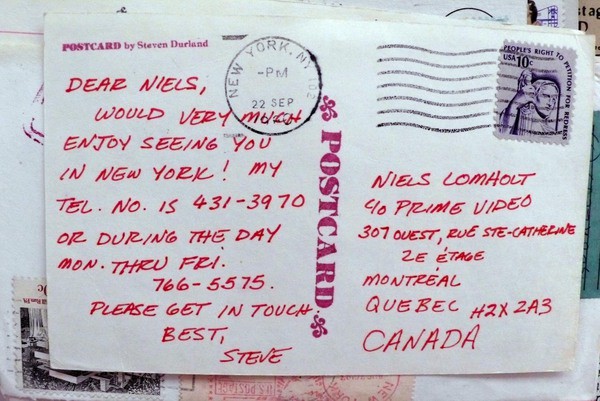 POSTCARD by Steven Durland
DEAR NIELS,
WOULD VERY MUCH
ENJOY SEEING YOU
IN NEW YORK! MY
TEL. NO. IS 431-3970
OR DURING THE DAY
MON. THRU FRI.
766-5575.
PLEASE GET IN TOUCH.
BEST,
STEVE
POSTCARD
NEW YORK, NY
-PM
22 SEP
PEOPLE'S RIGHT TO PETITION FOR REDRESS
USA 10c
NIELS LOMHOLT
40 PRIME VIDEO
307 OUEST, RUÉ STE-CATHERINE
2E ÉTAGE
MONTRÉAL
QUEBEC H2X 2A3
CANADA